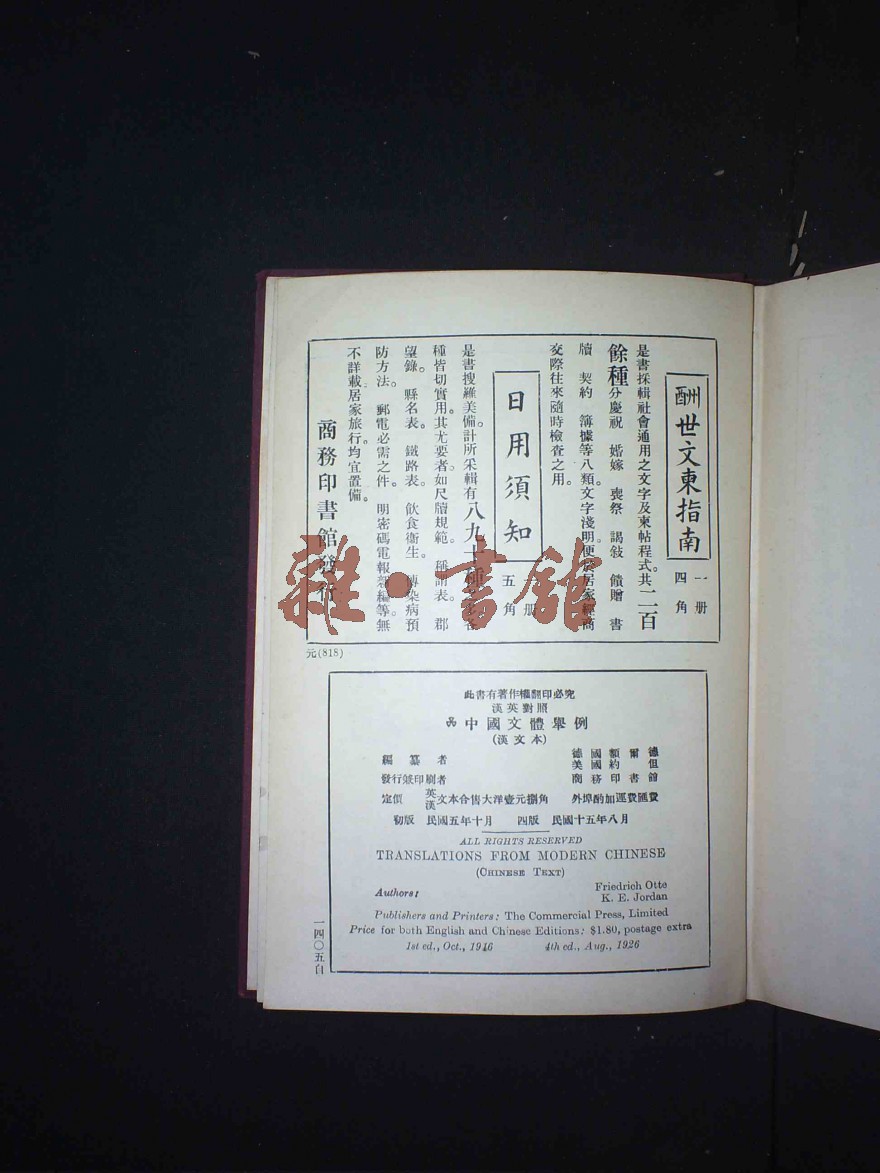 酬世文柬指南
一册
四角
是書採輯社會通用之文字及柬帖程式。共二百
餘種分慶祝 婚嫁 喪祭 謁敍 餽贈 書
牘 契約 簿據等八類文字淺明。便於居家經商
交際往來隨時檢查之用。
日用須知
册
五角
是書搜羅美備。計所采輯有八九十種
種皆切實用。其尤要者。如尺牘規範。稱謂表。郡
望錄。縣名表。鐵路表。飲食衞生。傳染病預
防方法。郵電必需之件。明密碼電報新編等。無
不詳載居家旅行。均宜置備。
商務印書館發行
雜·書館
元(818)
此書有著作權翻印必究
漢英對照
中國文體舉例
(漢文本)
編纂者 德國額爾德
美國約但
發行兼印刷者 商務印書館
定價 英漢文本合售大洋壹元捌角 外埠酌加運費匯費
初版 民國五年十月 四版 民國十五年八月
ALL RIGHTS RESERVED
TRANSLATIONS FROM MODERN CHINESE
(CHINESE TEXT)
Authors: Friedrich Otte
K. E. Jordan
Publishers and Printers: The Commercial Press, Limited
Price for both English and Chinese Editions: $1.80, postage extra
1st ed., Oct., 1916 4th ed., Aug., 1926
一四〇五自